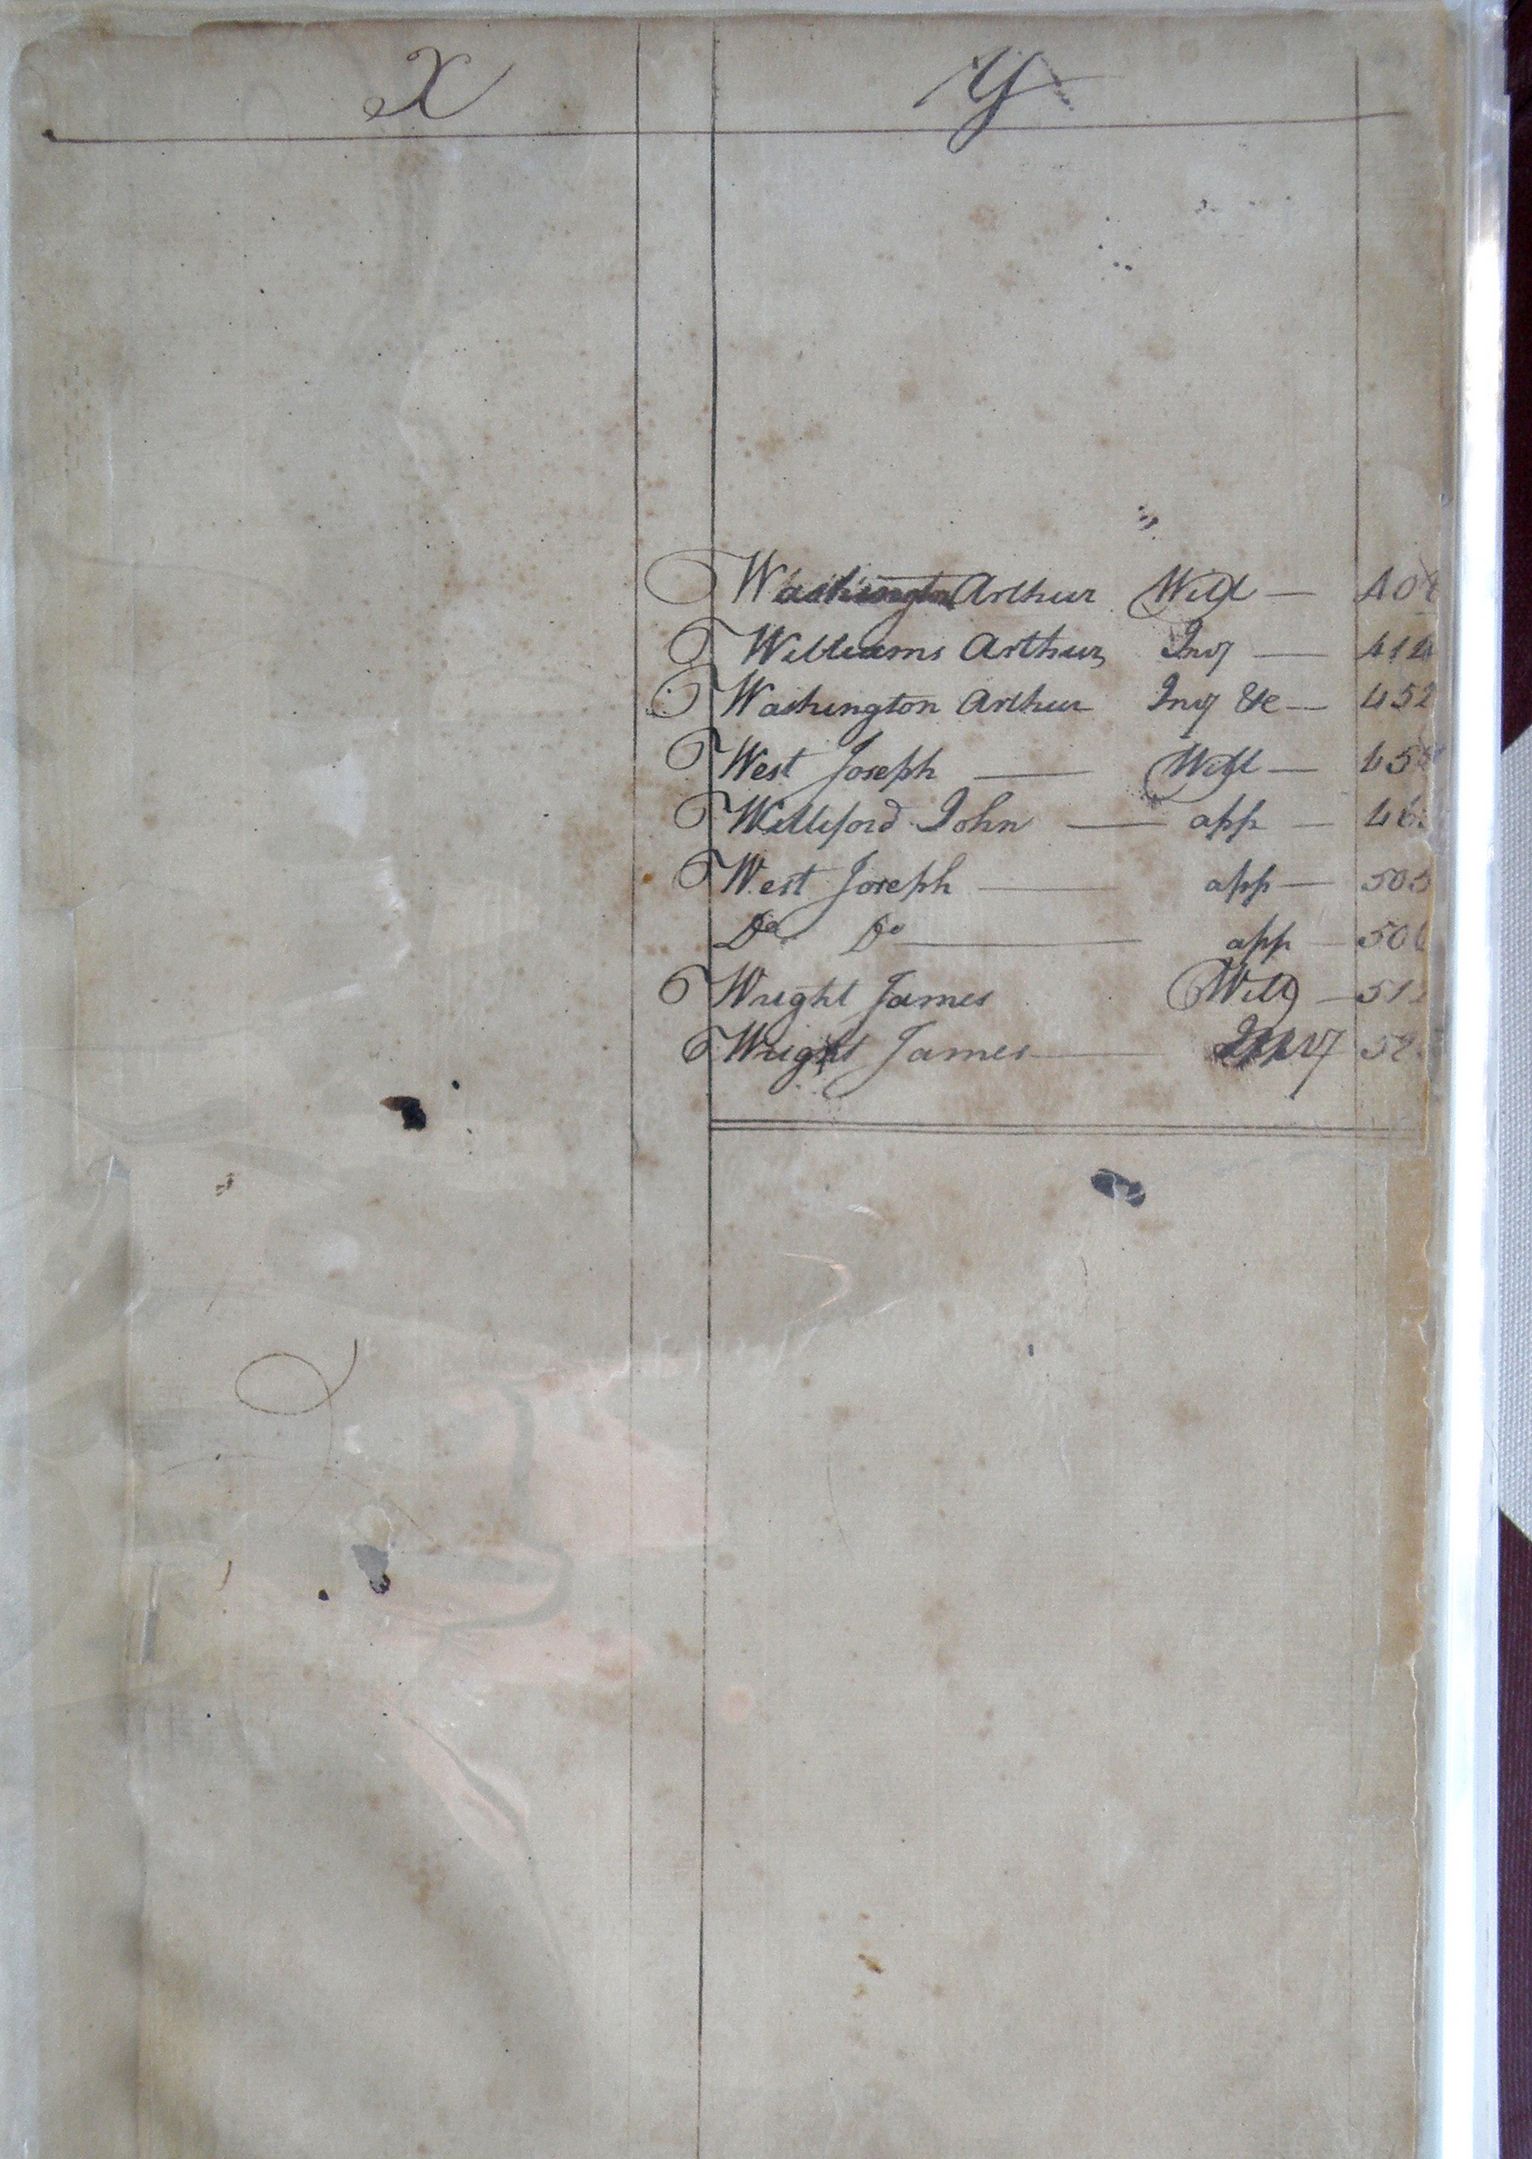 X Y
Washington Arthur Will — 40
Williams Arthur Invy — 414
Washington Arthur Invy &c — 452
West Joseph — Will — 45
Williford John — app — 46
West Joseph — app — 505
Do Do — app — 506
Wright James Will — 51
Wright James — Invy 52